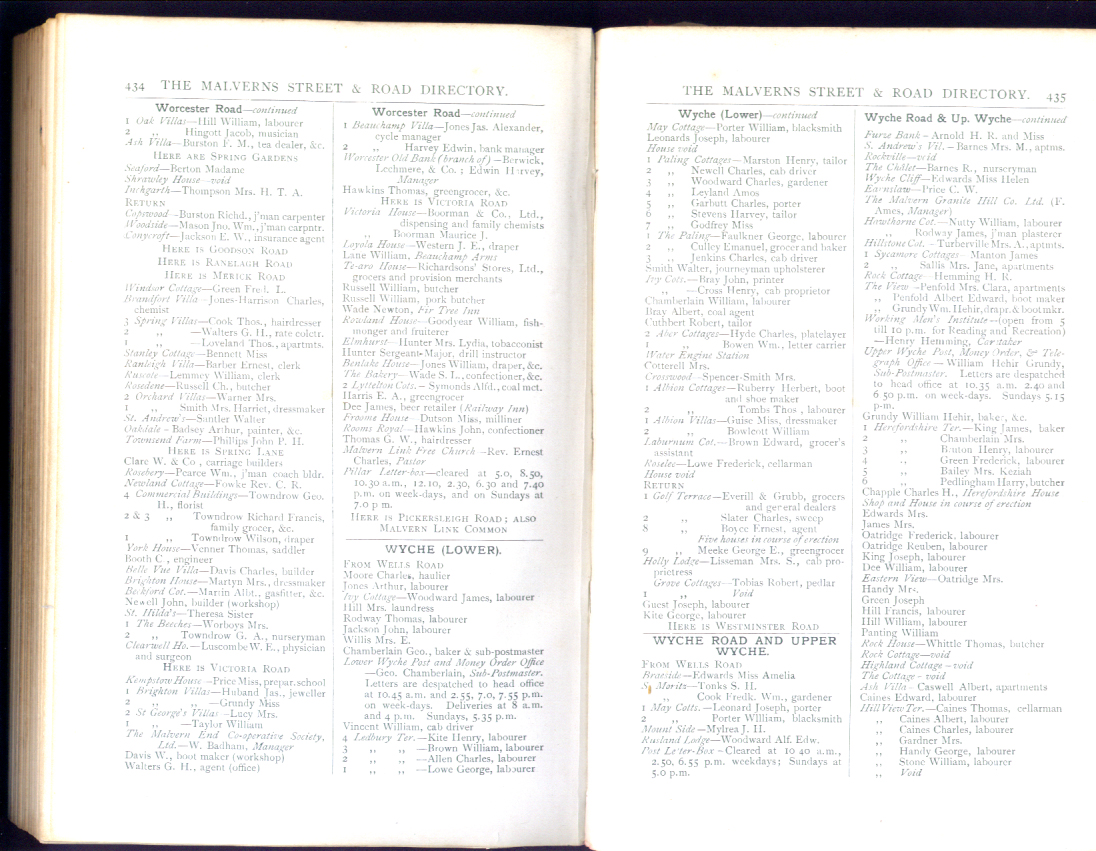 434 THE MALVERNS STREET & ROAD DIRECTORY.
Worcester Road—continued
1 Oak Villas—Hill William, labourer
2 ,, Hingott Jacob, musician
Ash Villa—Burston F. M., tea dealer, &c.
HERE ARE SPRING GARDENS
Seaford—Berton Madame
Shrawley House—void
Inchgarth—Thompson Mrs. H. T. A.
RETURN
Copswood—Burston Richd., j'man carpenter
Woodside—Mason Jno. Wm., j'man carpntr.
Conycroft—Jackson E. W., insurance agent
HERE IS GOODSON ROAD
HERE IS RANELAGH ROAD
HERE IS MERICK ROAD
Windsor Cottage—Green Fred. L.
Brandfort Villa—Jones-Harrison Charles,
chemist
3 Spring Villas—Cook Thos., hairdresser
2 ,, —Walters G. H., rate colctr.
1 ,, —Loveland Thos., apartmts.
Stanley Cottage—Bennett Miss
Ranleigh Villa—Barber Ernest, clerk
Ruscote—Lemmey William, clerk
Rosedene—Russell Ch., butcher
2 Orchard Villas—Warner Mrs.
1 ,, Smith Mrs. Harriet, dressmaker
St. Andrew's—Santler Walter
Oakdale—Badsey Arthur, painter, &c.
Townsend Farm—Phillips John P. H.
HERE IS SPRING LANE
Clare W. & Co., carriage builders
Rosebery—Pearce Wm., j'man coach bldr.
Newland Cottage—Fowke Rev. C. R.
4 Commercial Buildings—Towndrow Geo.
H., florist
2 & 3 ,, Towndrow Richard Francis,
family grocer, &c.
1 ,, Towndrow Wilson, draper
York House—Venner Thomas, saddler
Booth C., engineer
Belle Vue Villa—Davis Charles, builder
Brighton House—Martyn Mrs., dressmaker
Beckford Cot.—Martin Albt., gasfitter, &c.
Newell John, builder (workshop)
St. Hilda's—Theresa Sister
1 The Beeches—Worboys Mrs.
2 ,, Towndrow G. A., nurseryman
Clearwell Ho.—Luscombe W. E., physician
and surgeon
HERE IS VICTORIA ROAD
Kempstow House—Price Miss, prepar. school
1 Brighton Villas—Huband Jas., jeweller
2 ,, ,, —Grundy Miss
2 St George's Villas—Lucy Mrs.
1 ,, —Taylor William
The Malvern End Co-operative Society,
Ltd.—W. Badham, Manager
Davis W., boot maker (workshop)
Walters G. H., agent (office)
Worcester Road—continued
1 Beauchamp Villa—Jones Jas. Alexander,
cycle manager
2 ,, Harvey Edwin, bank manager
Worcester Old Bank (branch of)—Berwick,
Lechmere, & Co.; Edwin Harvey,
Manager
Hawkins Thomas, greengrocer, &c.
HERE IS VICTORIA ROAD
Victoria House—Boorman & Co., Ltd.,
dispensing and family chemists
,, Boorman Maurice J.
Loyola House—Western J. E., draper
Lane William, Beauchamp Arms
Te-aro House—Richardsons' Stores, Ltd.,
grocers and provision merchants
Russell William, butcher
Russell William, pork butcher
Wade Newton, Fir Tree Inn
Rowland House—Goodyear William, fish-
monger and fruiterer
Elmhurst—Hunter Mrs. Lydia, tobacconist
Hunter Sergeant-Major, drill instructor
Benlake House—Jones William, draper, &c.
The Bakery—Wade S. L., confectioner, &c.
2 Lyttelton Cots.—Symonds Alfd., coal mct.
Harris E. A., greengrocer
Dee James, beer retailer (Railway Inn)
Froome House—Dutson Miss, milliner
Rooms Royal—Hawkins John, confectioner
Thomas G. W., hairdresser
Malvern Link Free Church—Rev. Ernest
Charles, Pastor
Pillar Letter-box—cleared at 5.0, 8.50,
10.30 a.m., 12.10, 2.30, 6.30 and 7.40
p.m. on week-days, and on Sundays at
7.0 p m.
HERE IS PICKERSLEIGH ROAD; ALSO
MALVERN LINK COMMON
WYCHE (LOWER).
FROM WELLS ROAD
Moore Charles, haulier
Jones Arthur, labourer
Ivy Cottage—Woodward James, labourer
Hill Mrs. laundress
Rodway Thomas, labourer
Jackson John, labourer
Willis Mrs. E.
Chamberlain Geo., baker & sub-postmaster
Lower Wyche Post and Money Order Office
—Geo. Chamberlain, Sub-Postmaster.
Letters are despatched to head office
at 10.45 a.m. and 2.55, 7.0, 7.55 p.m.
on week-days. Deliveries at 8 a.m.
and 4 p.m. Sundays, 5.35 p.m.
Vincent William, cab driver
4 Ledbury Ter.—Kite Henry, labourer
3 ,, ,, —Brown William, labourer
2 ,, ,, —Allen Charles, labourer
1 ,, ,, —Lowe George, labourer
THE MALVERNS STREET & ROAD DIRECTORY. 435
Wyche (Lower)—continued
May Cottage—Porter William, blacksmith
Leonards Joseph, labourer
House void
1 Paling Cottages—Marston Henry, tailor
2 ,, Newell Charles, cab driver
3 ,, Woodward Charles, gardener
4 ,, Leyland Amos
5 ,, Garbutt Charles, porter
6 ,, Stevens Harvey, tailor
7 ,, Godfrey Miss
1 The Paling—Faulkner George, labourer
2 ,, Culley Emanuel, grocer and baker
3 ,, Jenkins Charles, cab driver
Smith Walter, journeyman upholsterer
Ivy Cots.—Bray John, printer
,, —Cross Henry, cab proprietor
Chamberlain William, labourer
Bray Albert, coal agent
Cuthbert Robert, tailor
2 Aber Cottages—Hyde Charles, platelayer
1 ,, Bowen Wm., letter carrier
Water Engine Station
Cotterell Mrs.
Crosswood—Spencer-Smith Mrs.
1 Albion Cottages—Ruberry Herbert, boot
and shoe maker
2 ,, Tombs Thos., labourer
1 Albion Villas—Guise Miss, dressmaker
2 ,, Bowlcott William
Laburnum Cot.—Brown Edward, grocer's
assistant
Roselec—Lowe Frederick, cellarman
House void
RETURN
1 Golf Terrace—Everill & Grubb, grocers
and general dealers
2 ,, Slater Charles, sweep
8 ,, Boyce Ernest, agent
Five houses in course of erection
9 ,, Meeke George E., greengrocer
Holly Lodge—Lisseman Mrs. S., cab pro-
prietress
Grove Cottages—Tobias Robert, pedlar
1 ,, Void
Guest Joseph, labourer
Kite George, labourer
HERE IS WESTMINSTER ROAD
WYCHE ROAD AND UPPER
WYCHE.
FROM WELLS ROAD
Braeside—Edwards Miss Amelia
St. Moritz—Tonks S. H.
,, Cook Fredk. Wm., gardener
1 May Cotts.—Leonard Joseph, porter
2 ,, Porter William, blacksmith
Mount Side—Mylrea J. H.
Rusland Lodge—Woodward Alf. Edw.
Post Letter-Box—Cleared at 10 40 a.m.,
2.50, 6.55 p.m. weekdays; Sundays at
5.0 p.m.
Wyche Road & Up. Wyche—continued
Furze Bank—Arnold H. R. and Miss
S. Andrew's Vil.—Barnes Mrs. M., aptms.
Rockville—void
The Châlet—Barnes R., nurseryman
Wyche Cliff—Edwards Miss Helen
Earnslaw—Price C. W.
The Malvern Granite Hill Co. Ltd. (F.
Ames, Manager)
Hawthorne Cot.—Nutty William, labourer
,, Rodway James, j'man plasterer
Hillstone Cot.—Turberville Mrs. A., aptmts.
1 Sycamore Cottages—Manton James
2 ,, Sallis Mrs. Jane, apartments
Rock Cottage—Hemming H. R.
The View—Penfold Mrs. Clara, apartments
,, Penfold Albert Edward, boot maker
,, Grundy Wm. Hehir, drapr. & bootmkr.
Working Men's Institute—(open from 5
till 10 p.m. for Reading and Recreation)
—Henry Hemming, Caretaker
Upper Wyche Post, Money Order, & Tele-
graph Office—William Hehir Grundy,
Sub-Postmaster. Letters are despatched
to head office at 10.35 a.m. 2.40 and
6 50 p.m. on week-days. Sundays 5.15
p.m.
Grundy William Hehir, baker, &c.
1 Herefordshire Ter.—King James, baker
2 ,, Chamberlain Mrs.
3 ,, Bruton Henry, labourer
4 ,, Green Frederick, labourer
5 ,, Bailey Mrs. Keziah
6 ,, Pedlingham Harry, butcher
Chapple Charles H., Herefordshire House
Shop and House in course of erection
Edwards Mrs.
James Mrs.
Oatridge Frederick, labourer
Oatridge Reuben, labourer
King Joseph, labourer
Dee William, labourer
Eastern View—Oatridge Mrs.
Handy Mrs.
Green Joseph
Hill Francis, labourer
Hill William, labourer
Panting William
Rock House—Whittle Thomas, butcher
Rock Cottage—void
Highland Cottage—void
The Cottage—void
Ash Villa—Caswell Albert, apartments
Caines Edward, labourer
Hill View Ter.—Caines Thomas, cellarman
,, Caines Albert, labourer
,, Caines Charles, labourer
,, Gardner Mrs.
,, Handy George, labourer
,, Stone William, labourer
,, Void